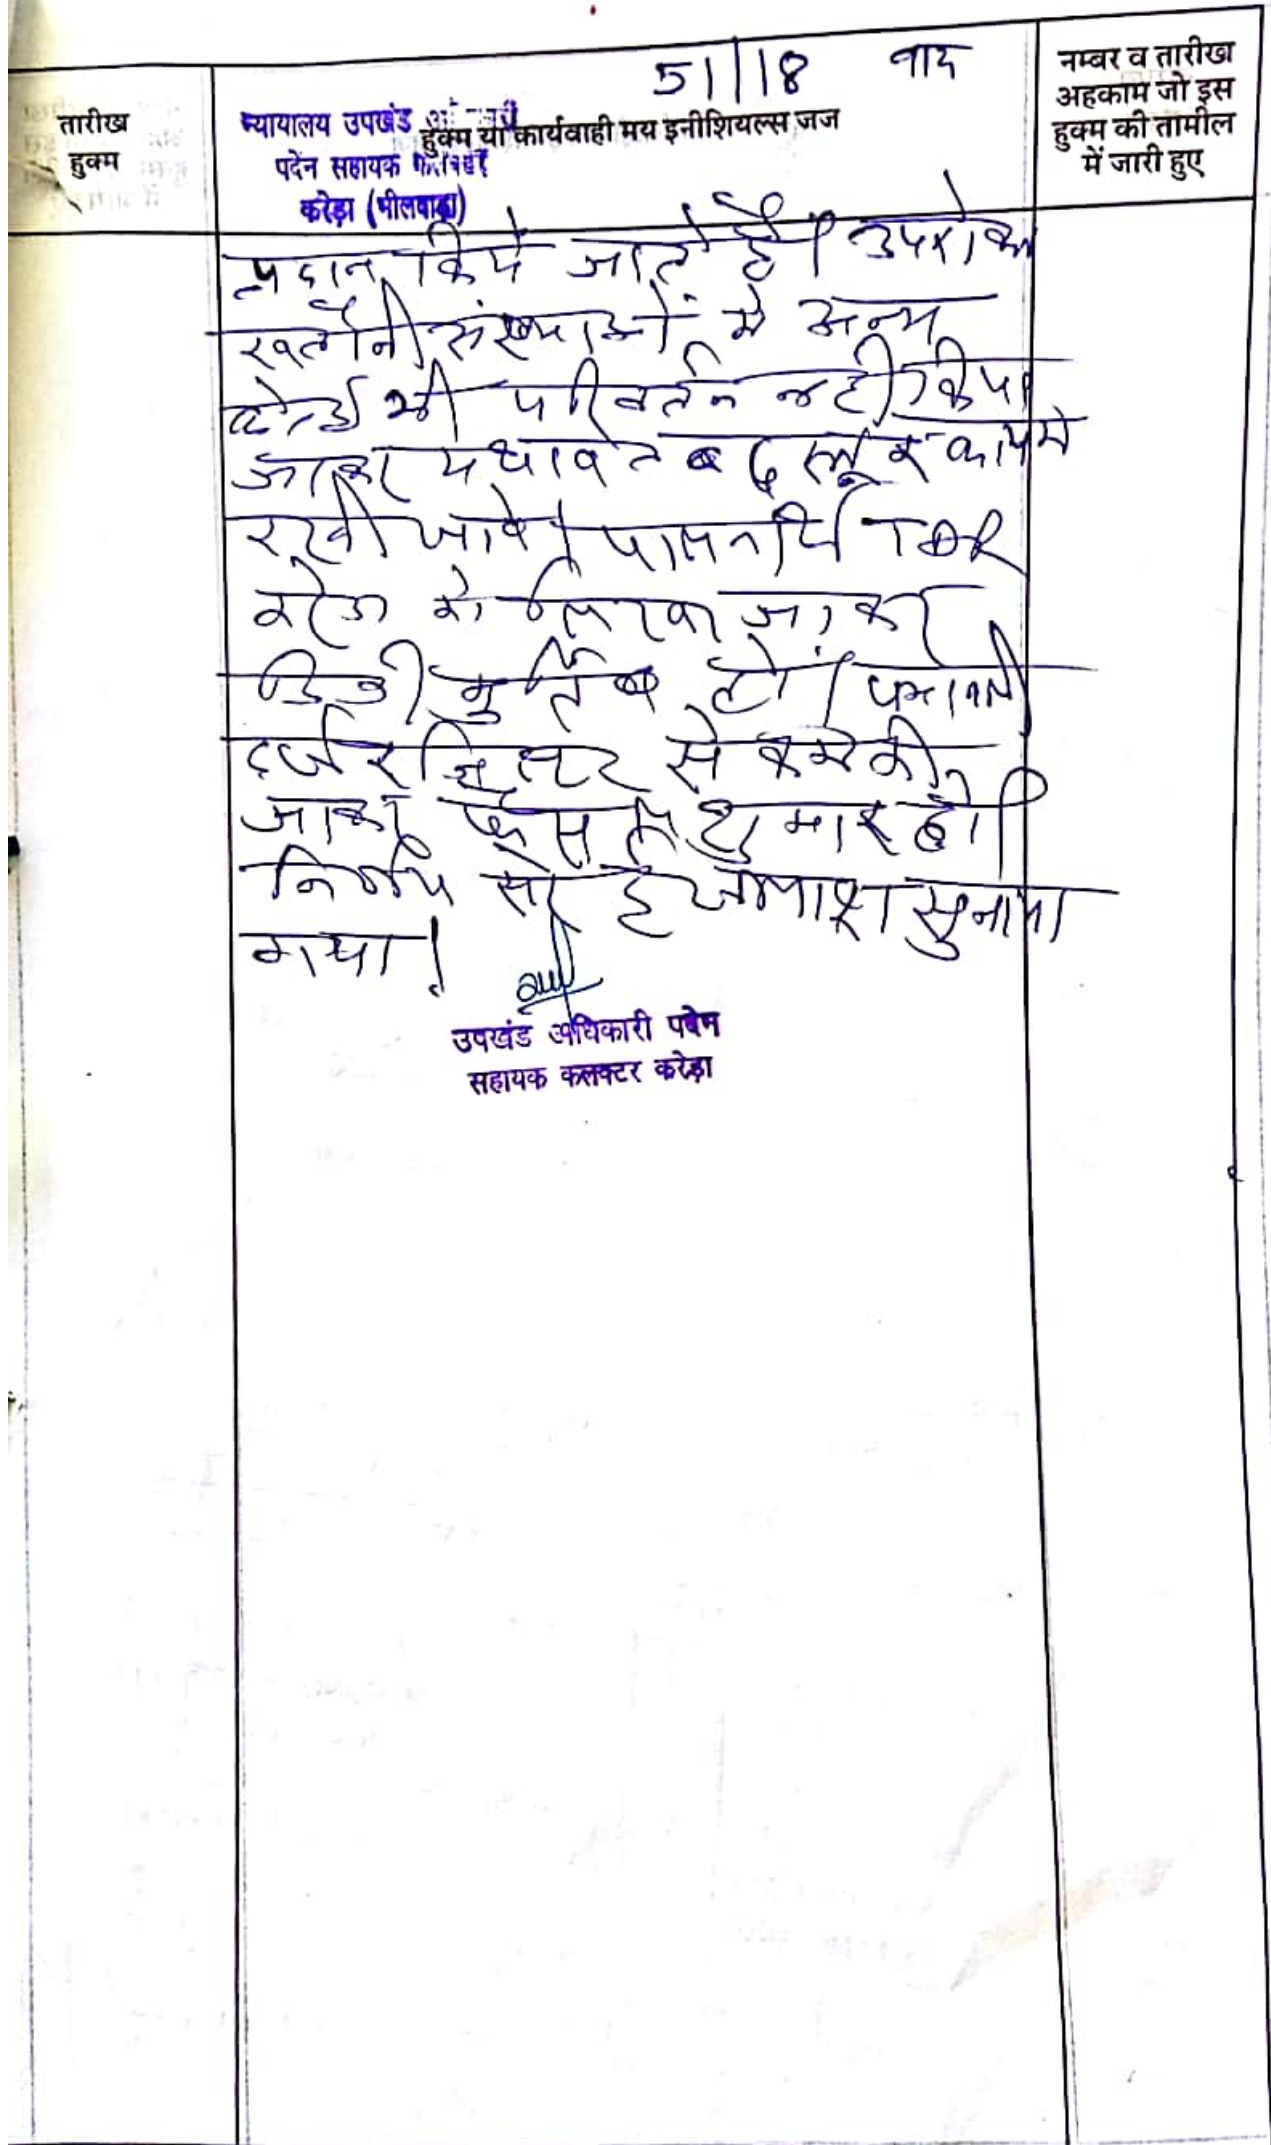 51/18 वाद
तारीख
हुक्म
न्यायालय उपखंड
पदेन सहायक कलक्टर
करेड़ा (भीलवाड़ा)
हुक्म या कार्यवाही मय इनीशियल्स जज
नम्बर व तारीख
अहकाम जो इस
हुक्म की तामील
में जारी हुए
प्रदान किये जाते है। उपरोक्त
खतौनी संख्याओं मे अन्य
कोई भी परिवर्तन नही किया
जाकर यथावत बदस्तूर कायम
रखी जावे। पालनार्थ TDR
करेडा को लिखा जाकर
डिक्री मुर्तिब हो। पत्रावली
दर्ज रजिस्टर से कम की
जाकर फैसल शुमार हो।
निर्णय सरे इजलाश सुनाया
गया।
उपखंड अधिकारी पदेन
सहायक कलक्टर करेड़ा